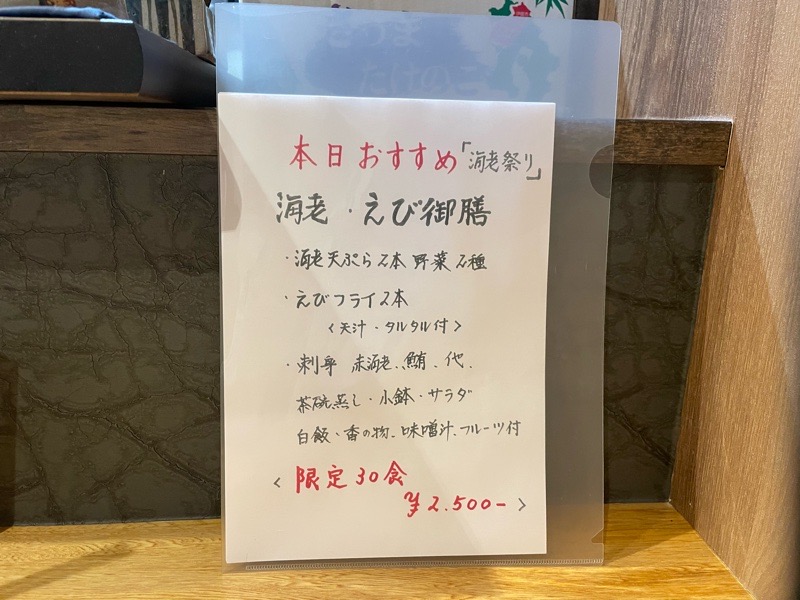 さつま
たけのこ
本日おすすめ「海老祭り」
海老・えび御膳
・海老天ぷら2本 野菜2種
・えびフライ2本
〈天汁・タルタル付〉
・刺身 赤海老、鮪、代、
茶碗蒸し・小鉢・サラダ
白飯、香の物、味噌汁、フルーツ付
〈限定30食
¥2.500-〉